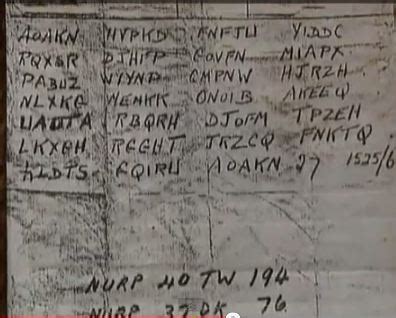 AOAKN HVPKD FNFJW YIDDC
RQXSR DJHFP GOVFN MIAPX
PABUZ WYYNP CMPNW HJRZH
NLXKG MEMKK ONOIB AKEEQ
UAOTA RBQRH DJOFM TPZEH
LKXGH RGGHT JRZCQ FNKTQ
KLDTS GQIRU AOAKN 27 1525/6
NURP 40 TW 194
NURP 37 DK 76